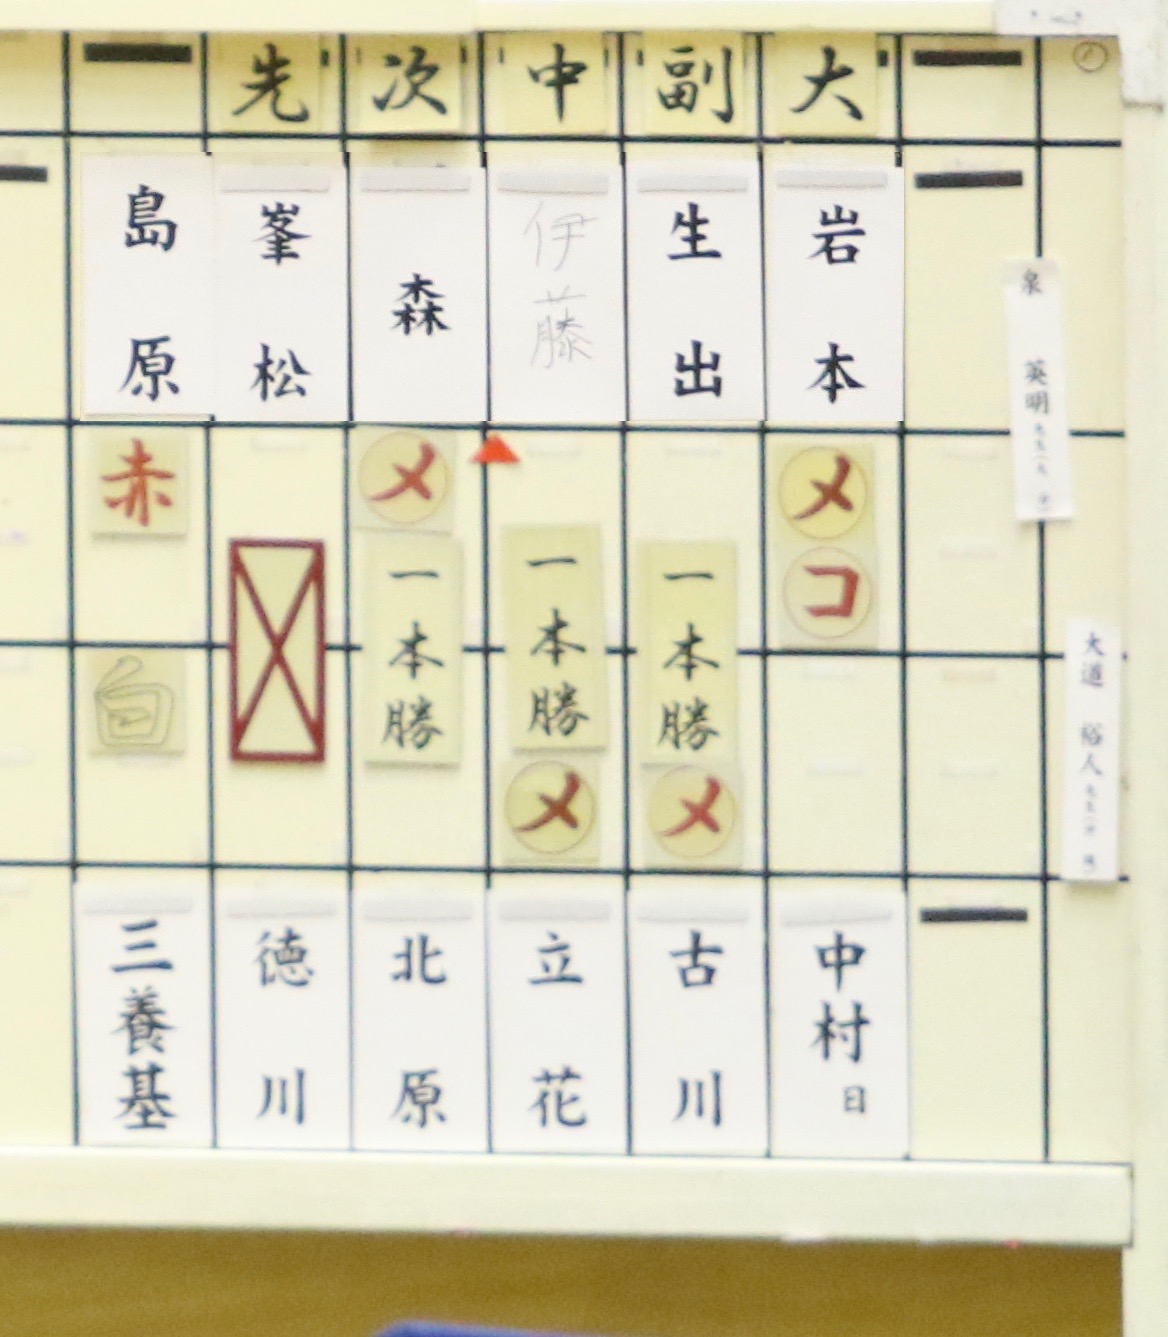 先 次 中 副 大
島原 峯松 森 伊藤 生出 岩本
赤 メ メ
コ
一本勝 一本勝 一本勝
白
メ メ
三養基 徳川 北原 立花 古川 中村日
泉 英明
大道 裕人